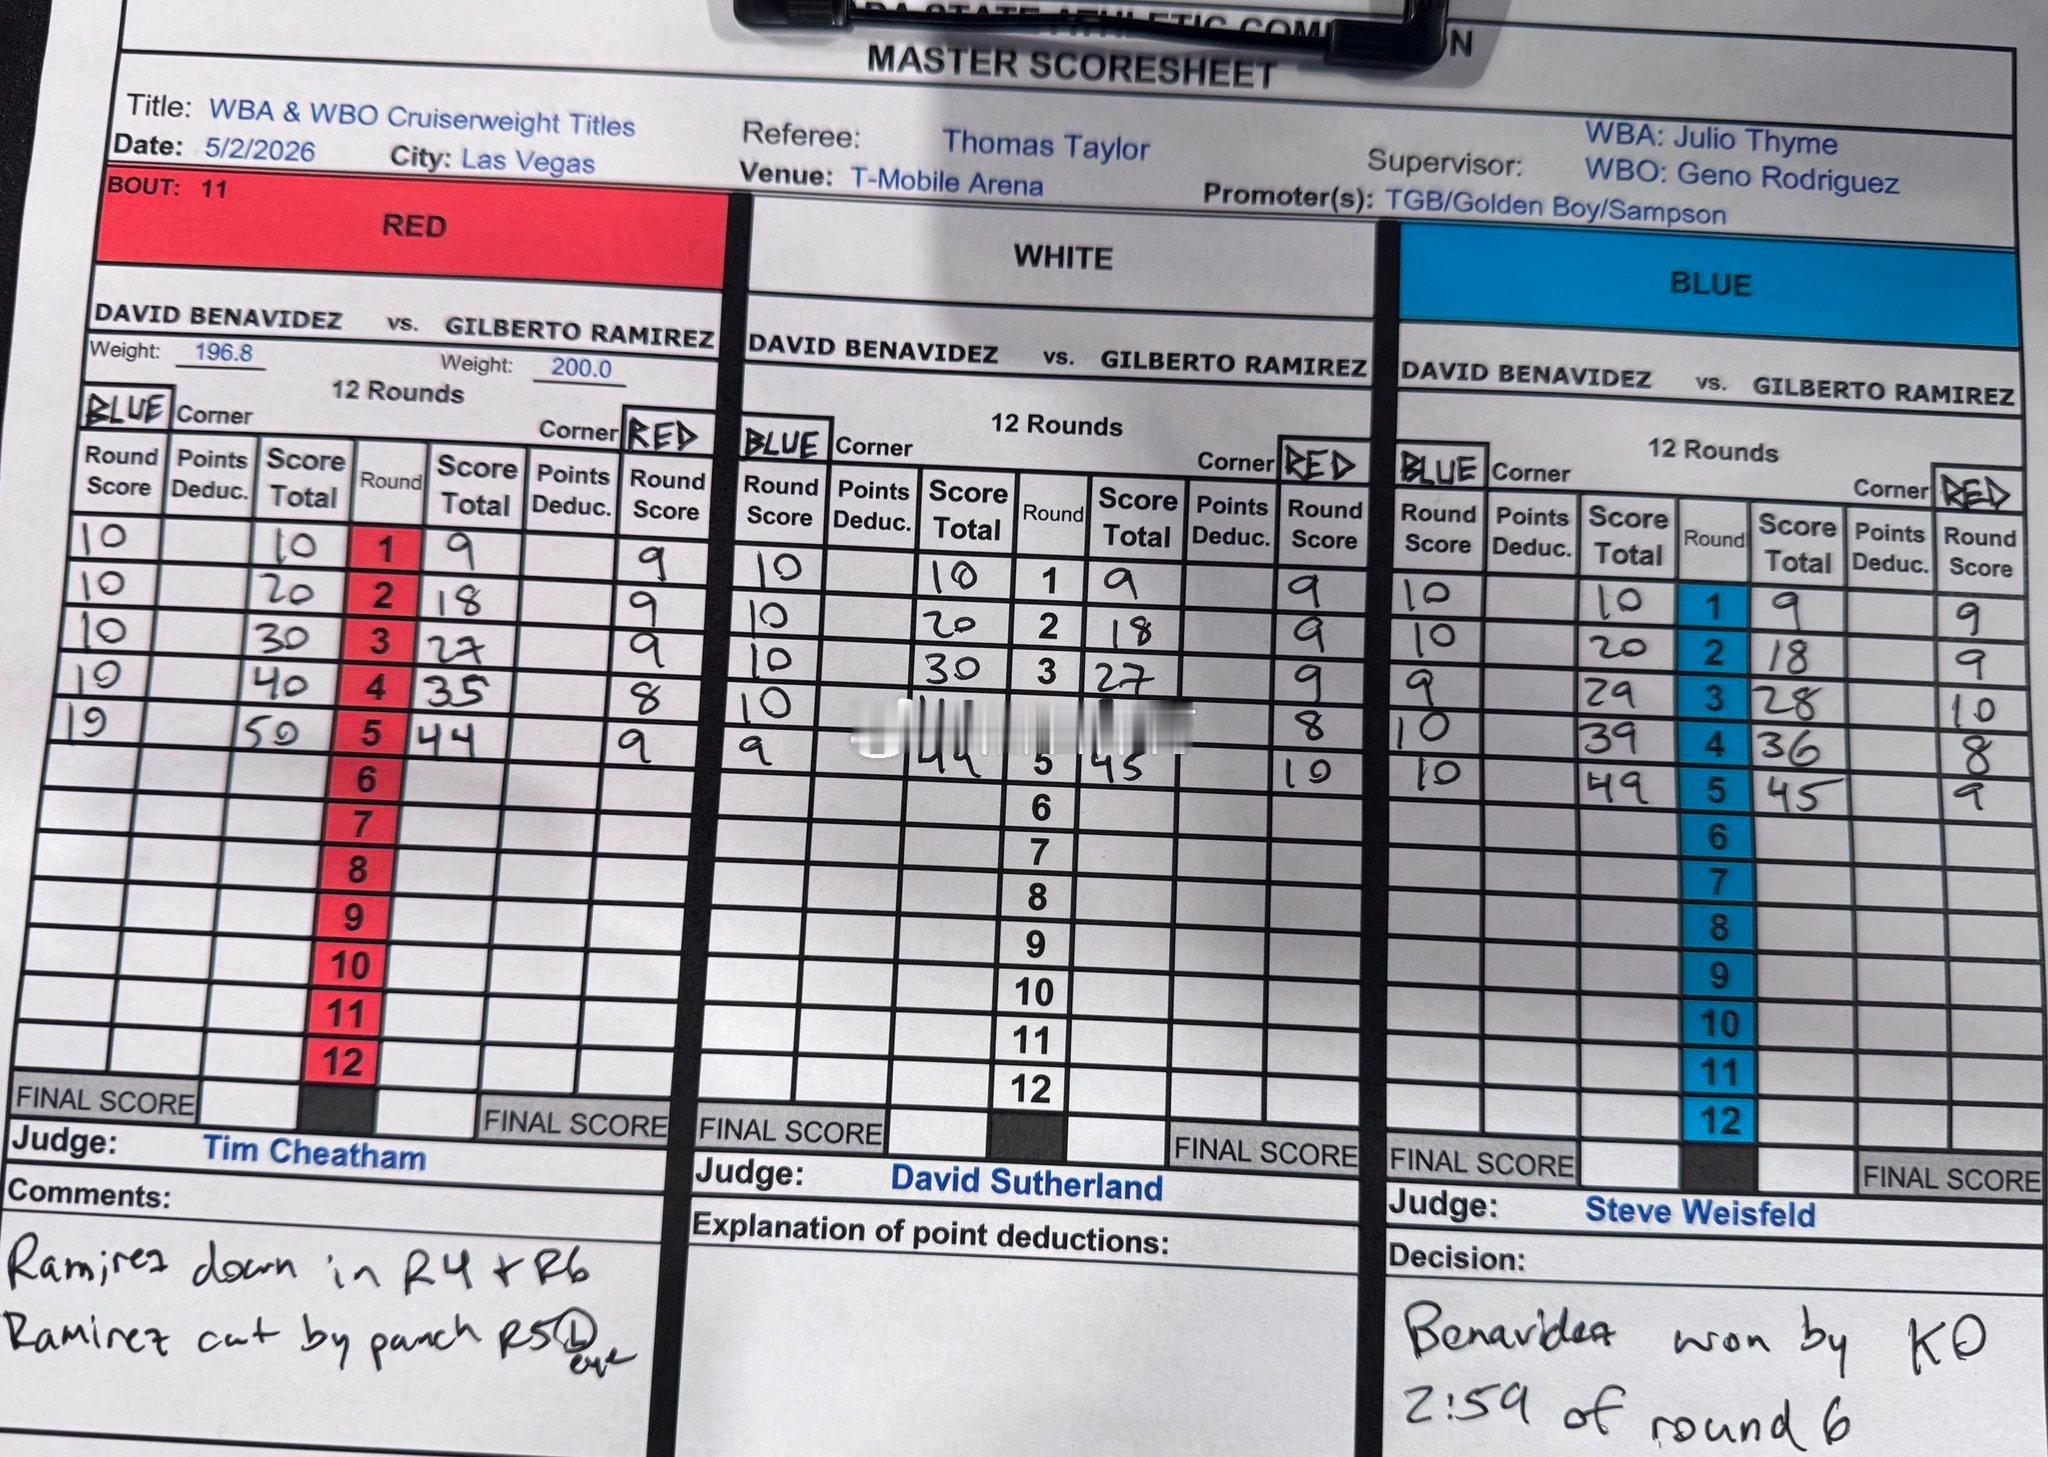 MASTER SCORESHEET
Title: WBA & WBO Cruiserweight Titles
Date: 5/2/2026 City: Las Vegas
Referee: Thomas Taylor
Venue: T-Mobile Arena
Supervisor: WBA: Julio Thyme
WBO: Geno Rodriguez
Promoter(s): TGB/Golden Boy/Sampson
BOUT: 11
RED
DAVID BENAVIDEZ vs. GILBERTO RAMIREZ
Weight: 196.8 Weight: 200.0
12 Rounds
BLUE Corner Corner RED
Round Score Points Deduc. Score Total Round Score Total Points Deduc. Round Score
10 10 1 9 9
10 20 2 18 9
10 30 3 27 9
10 40 4 35 8
10 50 5 44 9
6
7
8
9
10
11
12
FINAL SCORE FINAL SCORE
Judge: Tim Cheatham
Comments:
Ramirez down in R4 + R6
Ramirez cut by punch R5 L eye
WHITE
DAVID BENAVIDEZ vs. GILBERTO RAMIREZ
12 Rounds
BLUE Corner Corner RED
Round Score Points Deduc. Score Total Round Score Total Points Deduc. Round Score
10 10 1 9 9
10 20 2 18 9
10 30 3 27 9
10 8
9 44 5 45 10
6
7
8
9
10
11
12
FINAL SCORE FINAL SCORE
Judge: David Sutherland
Explanation of point deductions:
BLUE
DAVID BENAVIDEZ vs. GILBERTO RAMIREZ
12 Rounds
BLUE Corner Corner RED
Round Score Points Deduc. Score Total Round Score Total Points Deduc. Round Score
10 10 1 9 9
10 20 2 18 9
9 29 3 28 10
10 39 4 36 8
10 49 5 45 9
6
7
8
9
10
11
12
FINAL SCORE FINAL SCORE
Judge: Steve Weisfeld
Decision:
Benavidez won by KO
2:59 of round 6